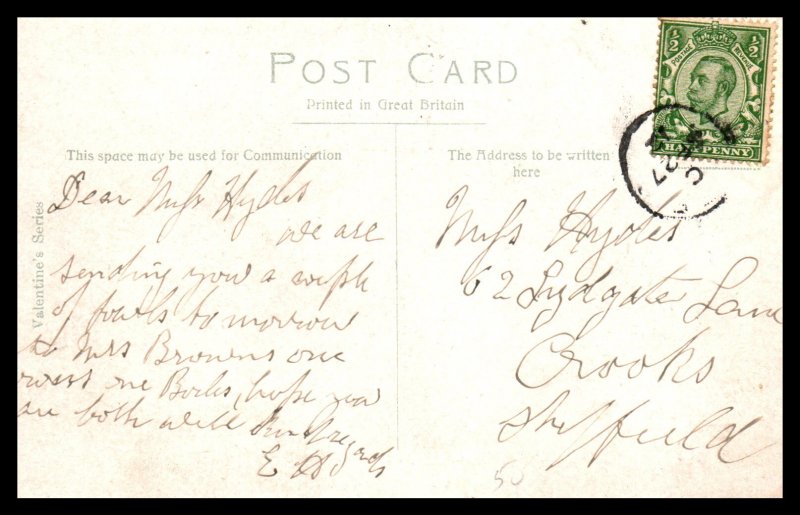 POST CARD
Printed in Great Britain
This space may be used for Communication
The Address to be written
here
Valentine's Series
½ ½
POSTAGE REVENUE
HALFPENNY
Dear Miss Hydes
we are
sending you a
of fowls tomorrow
to Mrs Browns one
one hope you
are both well Kind regards
E H
Miss Hydes
62 Lydgate Lane
Crooks
Sheffield
50